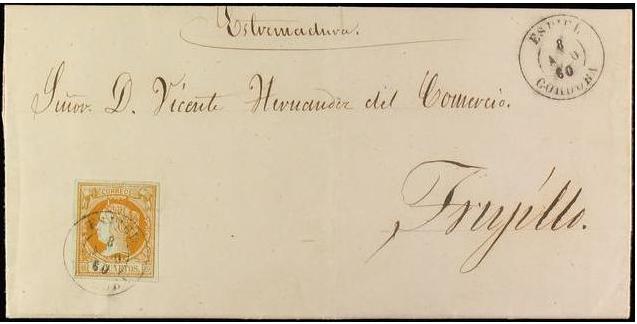 Estremadura.
ESPIEL
8
AGO
60
CORDOBA
Señor. D. Vicente Hernandez del Comercio.
Trujillo.
CORREOS
8
60
CUARTOS.